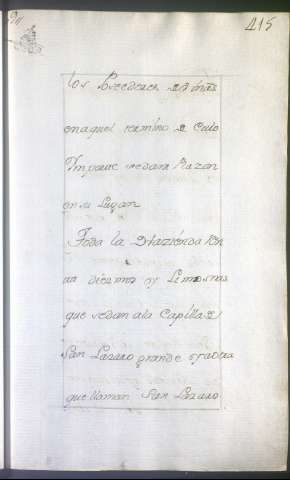 415
los Preedores
en aquel termino de cuio
Ymporte se dara Razon
en su Lugar
Toda la Hazienda Ren
tta diezmos y Limosnas
que se dan ala Capilla de
San Lazaro grande
que llaman San Lazaro